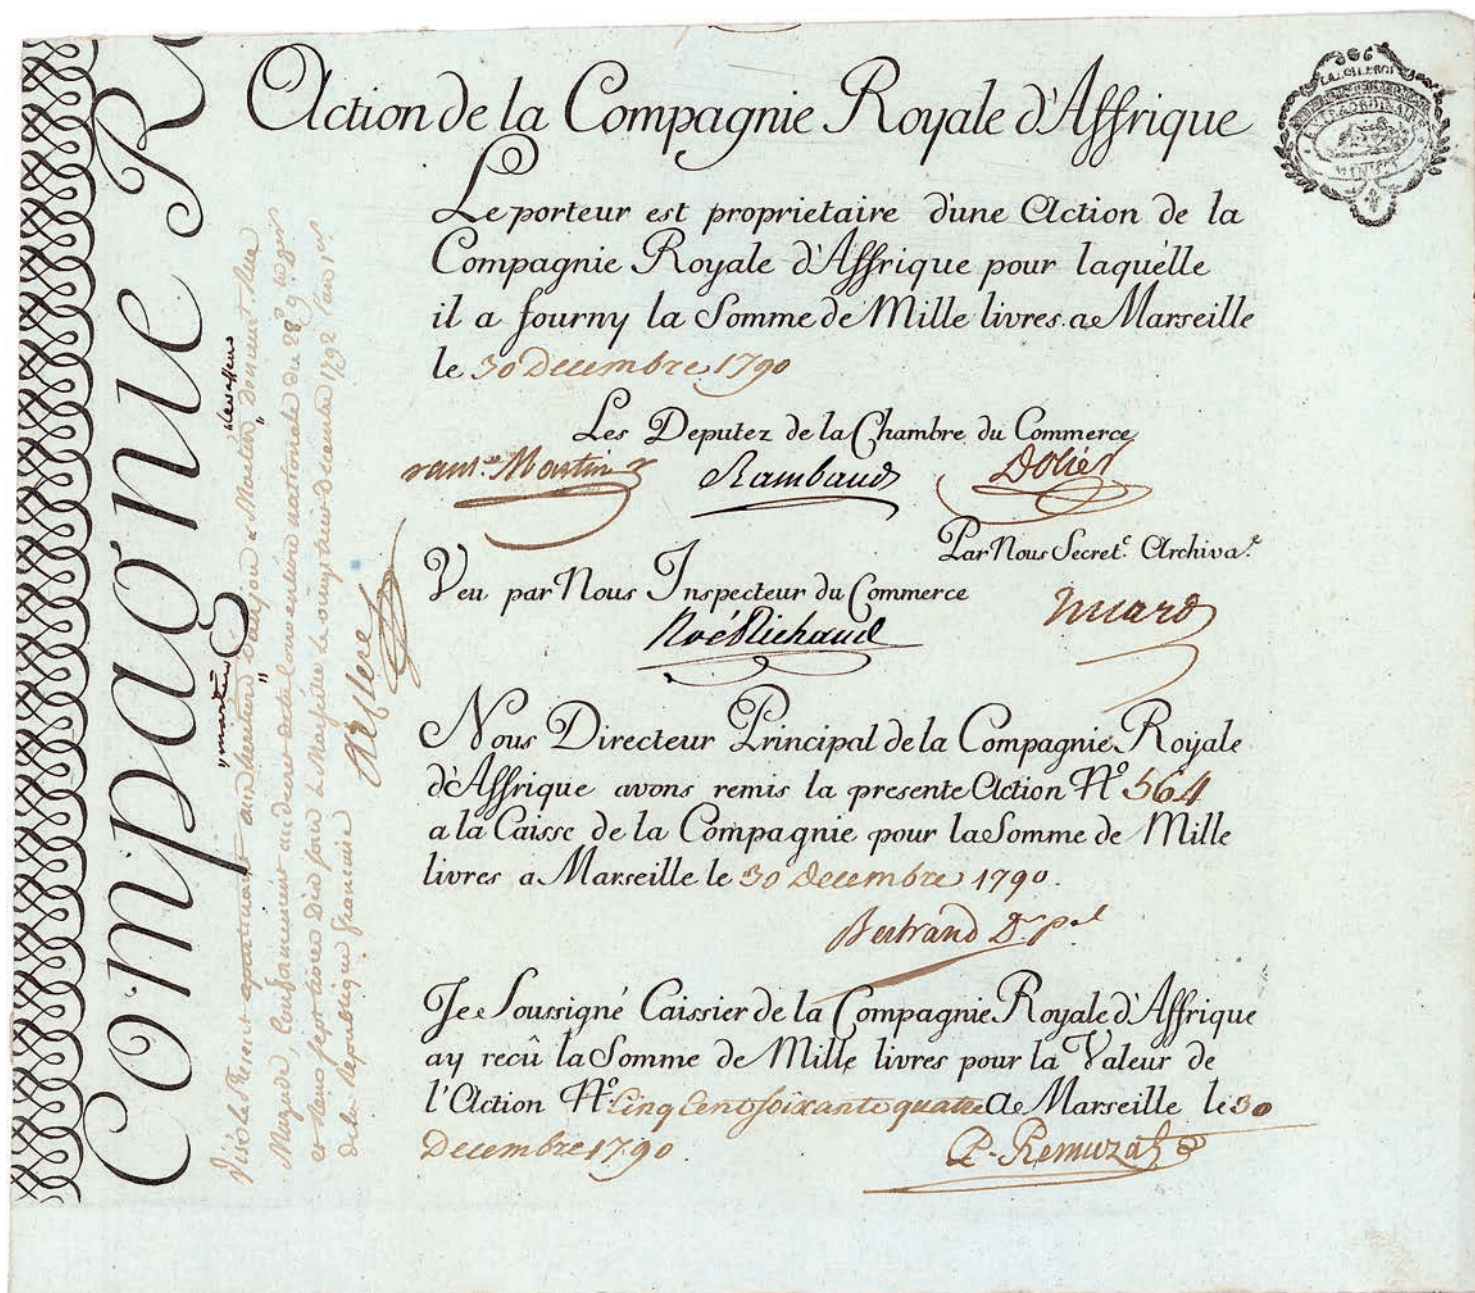 Action de la Compagnie Royale d'Affrique
Le porteur est proprietaire d'une Action de la
Compagnie Royale d'Affrique pour laquélle
il a fourny la Somme de Mille livres. a Marseille
le 30 Decembre 1790
Les Deputez de la Chambre du Commerce
Martin Rambaud Dolier
Par Nous Secret.e Archiva.e
Veu par Nous Inspecteur du Commerce
Noé Richaud
Nous Directeur Principal de la Compagnie Royale
d'Affrique avons remis la presente Action N.o 564
a la Caisse de la Compagnie pour la Somme de Mille
livres a Marseille le 30 Decembre 1790.
Bertrand D.r p.al
Je Soussigné Caissier de la Compagnie Royale d'Affrique
ay recû la Somme de Mille livres pour la Valeur de
l'Action N.o Cinq Cent soixante quatre A Marseille le 30
Decembre 1790.
P. Remuzat
Compagnie R
Visé le Present apartenant aux heritiers d'anjou & Martin
Mazade, Conformement au decret de la Convention nationale du 28 9.bre
et sous sept livres Dix sous a Marseille le vingt trois decembre 1792 l'an 1.er
de la Republique francaise
EXTRAORDINAIRE